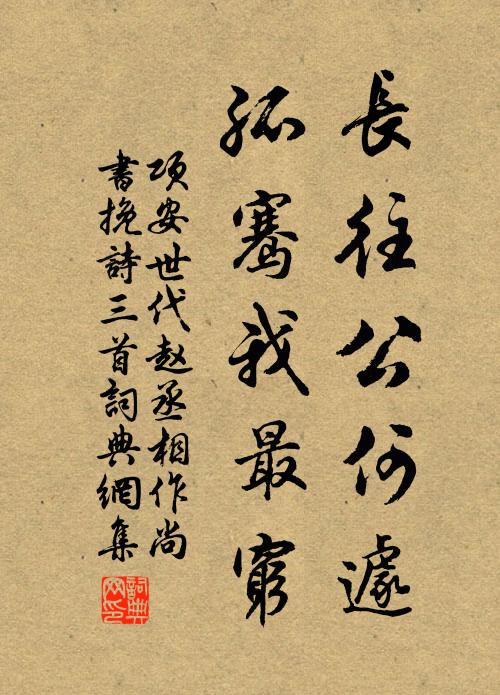 長往公何遽
孤騫我最窮
項安世代赵丞相作尚
書挽詩三首詞典網集